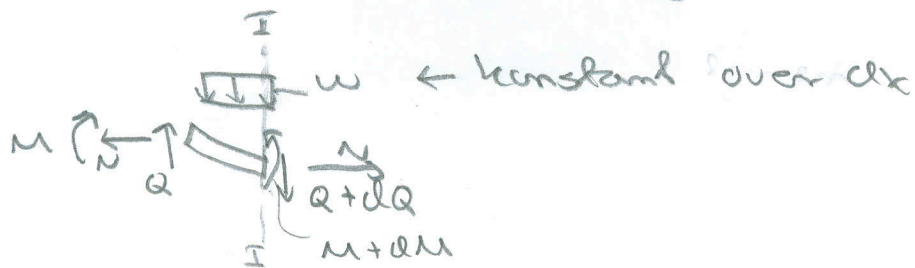 I
w ← konstant over dx
M N Q
N
Q+dQ
M+dM
I